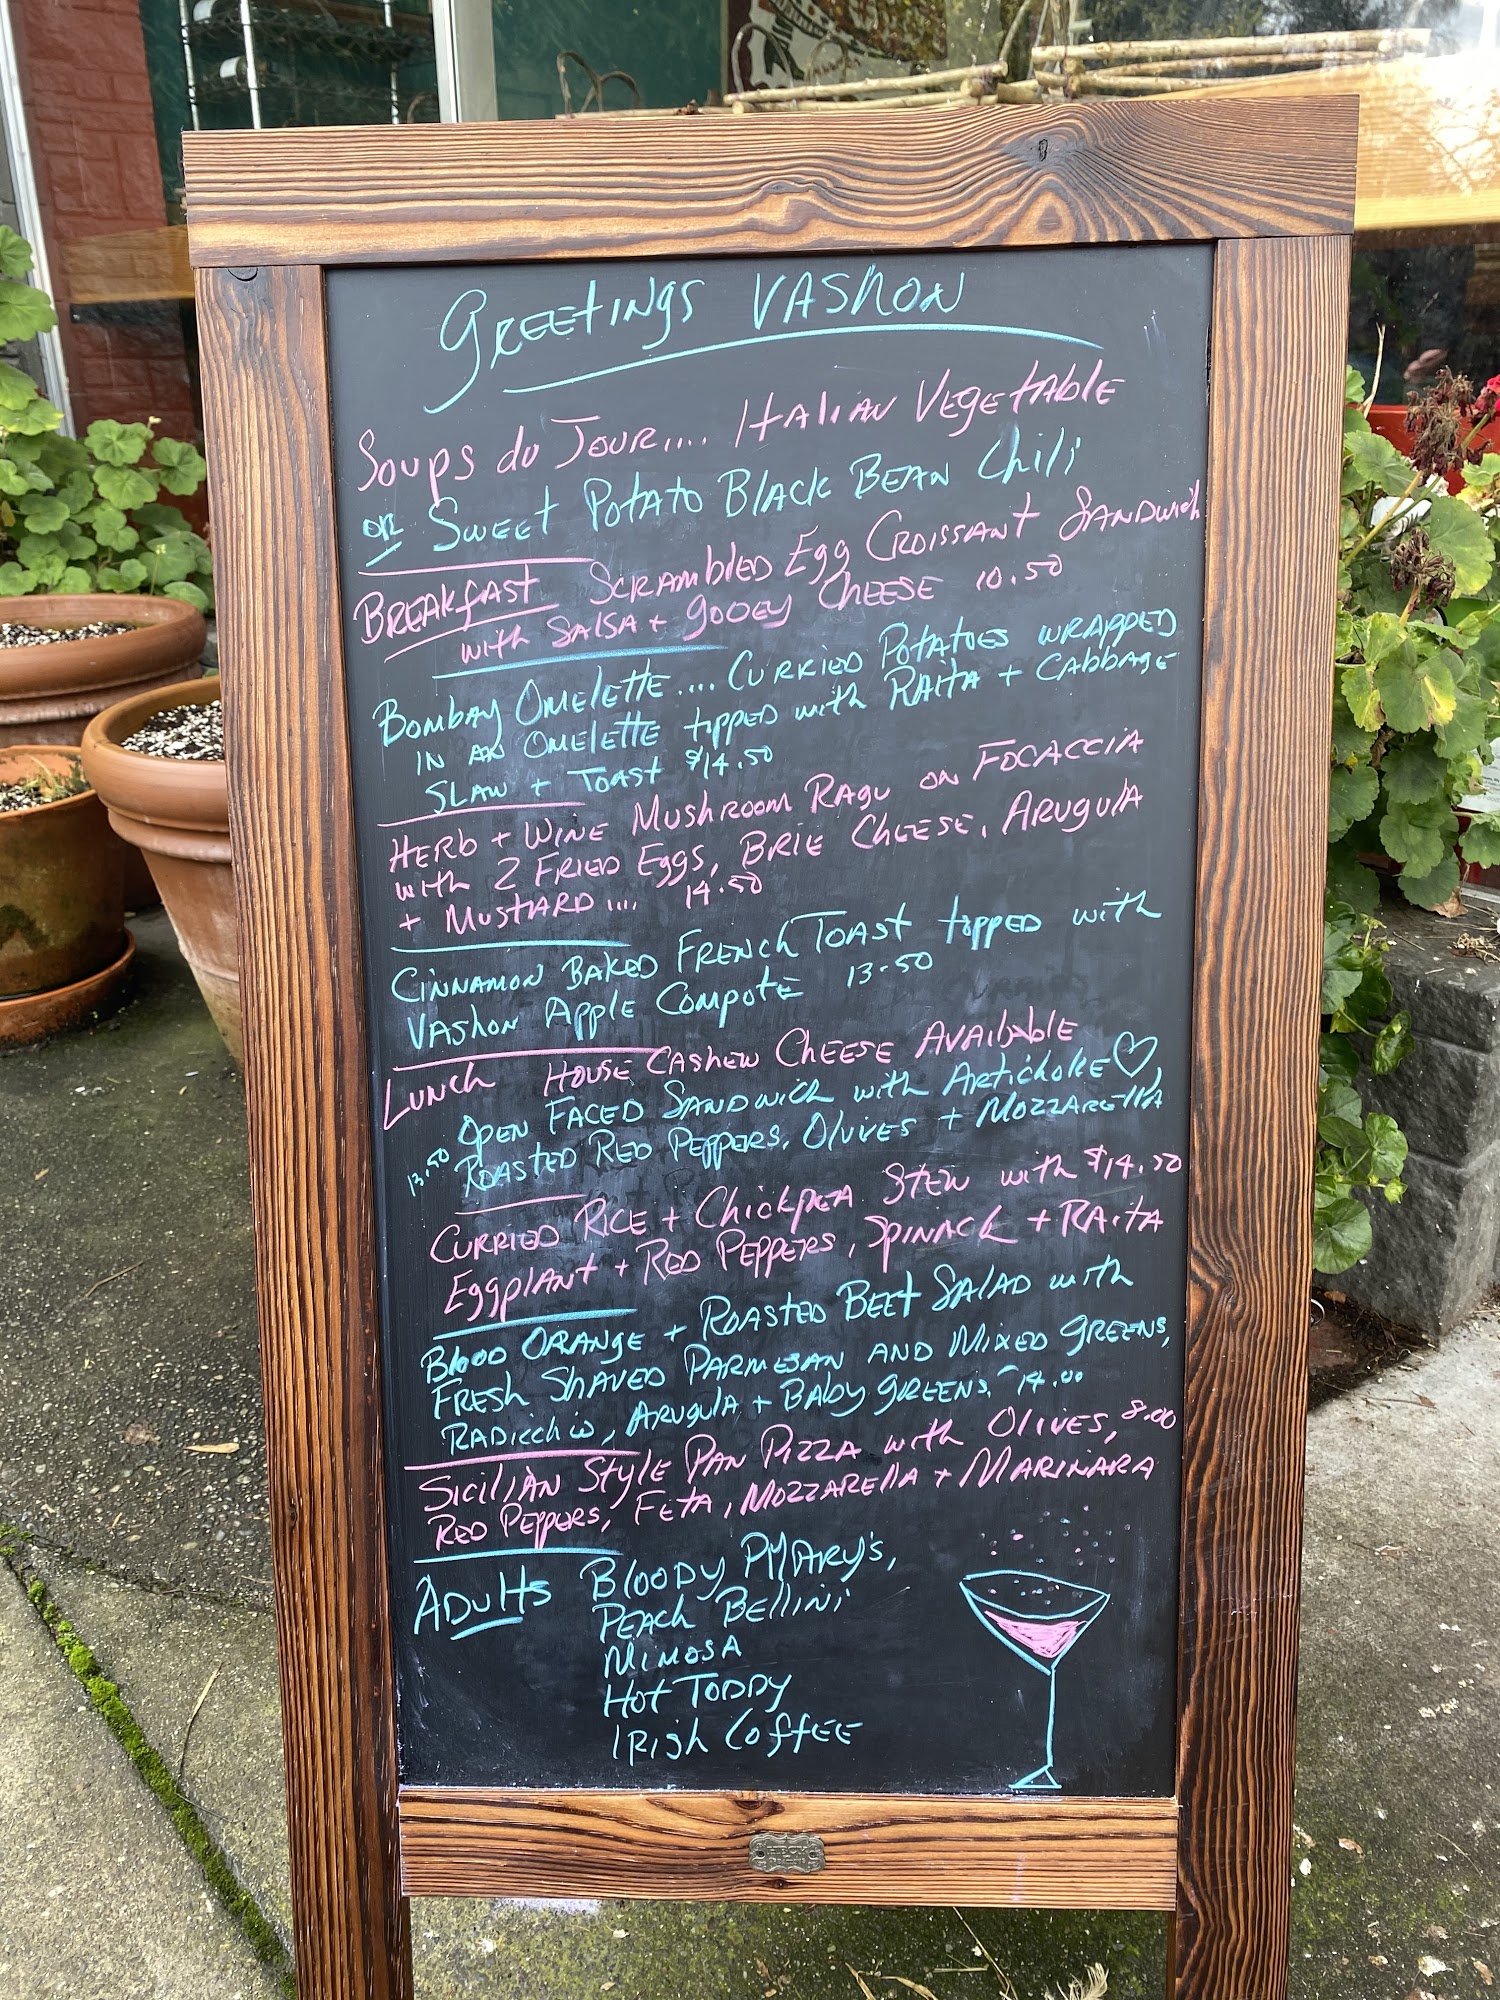 Greetings Vashon
Soups du Jour.... Italian Vegetable
or Sweet Potato Black Bean Chili
Breakfast Scrambled Egg Croissant Sandwich
with Salsa + Gooey Cheese 10.50
Bombay Omelette.... Curried Potatoes wrapped
in an Omelette topped with Raita + Cabbage
Slaw + Toast $14.50
Herb + Wine Mushroom Ragu on Focaccia
with 2 Fried Eggs, Brie Cheese, Arugula
+ Mustard.... 14.50
Cinnamon Baked French Toast topped with
Vashon Apple Compote 13-50
Lunch House Cashew Cheese Available
Open Faced Sandwich with Artichoke ♡,
13.50 Roasted Red Peppers, Olives + Mozzarella
Curried Rice + Chickpea Stew with $14.50
Eggplant + Red Peppers, Spinach + Raita
Blood Orange + Roasted Beet Salad with
Fresh Shaved Parmesan and Mixed Greens,
Radicchio, Arugula + Baby Greens. 14.00
Sicilian Style Pan Pizza with Olives, 8.00
Red Peppers, Feta, Mozzarella + Marinara
Adults Bloody Mary's,
Peach Bellini
Mimosa
Hot Toddy
Irish Coffee